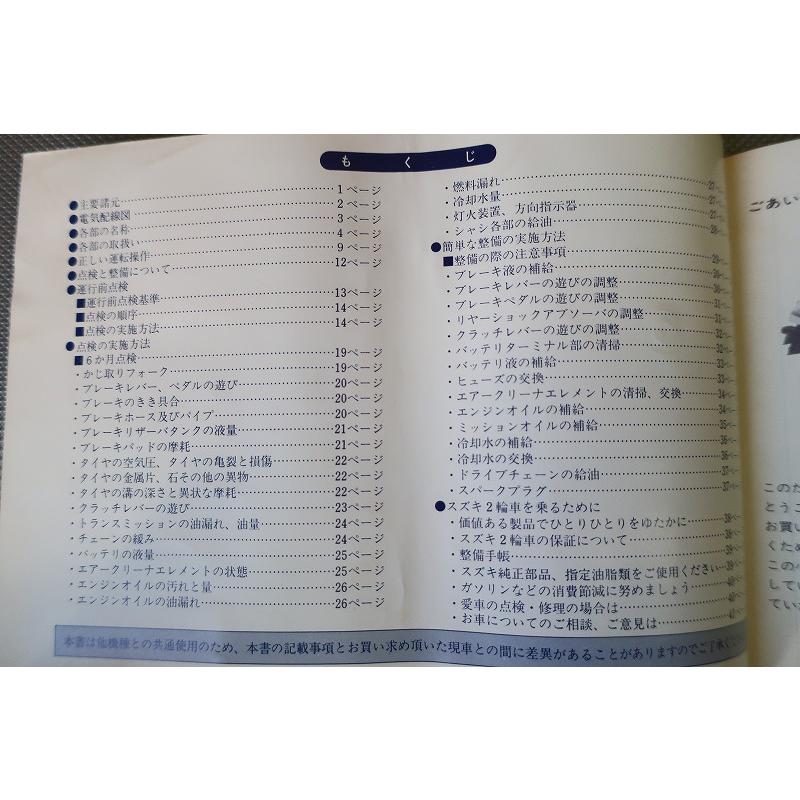 もくじ
●主要諸元……1ページ
●電気配線図……2ページ
●各部の名称……3ページ
●各部の取扱い……4ページ
●正しい運転操作……9ページ
●点検と整備について……12ページ
●運行前点検
■運行前点検基準……13ページ
■点検の順序……14ページ
■点検の実施方法……14ページ
●点検の実施方法
■6か月点検……19ページ
・かじ取りフォーク……19ページ
・ブレーキレバー、ペダルの遊び……20ページ
・ブレーキのきき具合……20ページ
・ブレーキホース及びパイプ……20ページ
・ブレーキリザーバタンクの液量……21ページ
・ブレーキパッドの摩耗……21ページ
・タイヤの空気圧、タイヤの亀裂と損傷……22ページ
・タイヤの金属片、石その他の異物……22ページ
・タイヤの溝の深さと異状な摩耗……22ページ
・クラッチレバーの遊び……23ページ
・トランスミッションの油漏れ、油量……24ページ
・チェーンの緩み……24ページ
・バッテリの液量……25ページ
・エアークリーナエレメントの状態……25ページ
・エンジンオイルの汚れと量……26ページ
・エンジンオイルの油漏れ……26ページ
・燃料漏れ……27
・冷却水量……27
・灯火装置、方向指示器……27
・シャシ各部の給油……28
●簡単な整備の実施方法
■整備の際の注意事項……29
・ブレーキ液の補給……30
・ブレーキレバーの遊びの調整……30
・ブレーキペダルの遊びの調整……31
・リヤーショックアブソーバの調整……31
・クラッチレバーの遊びの調整……32
・バッテリターミナル部の清掃……32
・バッテリ液の補給……33
・ヒューズの交換……33
・エアークリーナエレメントの清掃、交換……34
・エンジンオイルの補給……34
・ミッションオイルの補給……35
・冷却水の補給……36
・冷却水の交換……36
・ドライブチェーンの給油……37
・スパークプラグ……37
●スズキ2輪車を乗るために
・価値ある製品でひとりひとりをゆたかに……38
・スズキ2輪車の保証について……38
・整備手帳……39
・スズキ純正部品、指定油脂類をご使用ください……39
・ガソリンなどの消費節減に努めましょう……40
・愛車の点検・修理の場合は……40
・お車についてのご相談、ご意見は……
本書は他機種との共通使用のため、本書の記載事項とお買い求め頂いた現車との間に差異があることがありますのでご了承く
ごあい
このた
とうご
お買い
くため
この
してい
てい